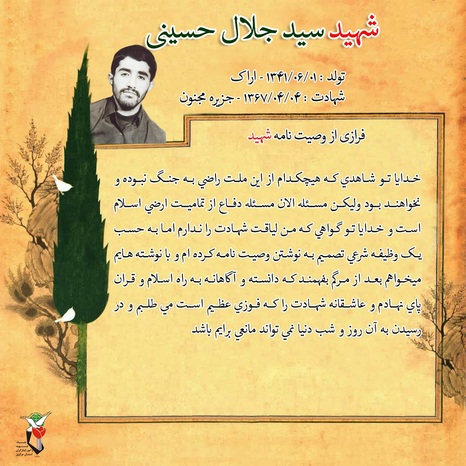 شهید سید جلال حسینی
تولد : ۱۳۴۱/۰۶/۰۱ - اراک
شهادت : ۱۳۶۷/۰۴/۰۴ - جزیره مجنون
فرازی از وصیت نامه شهید
خدايا تو شاهدي که هيچکدام از اين ملت راضي به جنگ نبوده و
نخواهند بود وليکن مسئله الان مسئله دفاع از تماميت ارضي اسلام
است و خدايا تو گواهي که من لياقت شهادت را ندارم اما به حسب
يک وظيفه شرعي تصميم به نوشتن وصيت نامه کرده ام و با نوشته هايم
ميخواهم بعد از مرگم بفهمند که دانسته و آگاهانه به راه اسلام و قران
پاي نهادم و عاشقانه شهادت را که فوزي عظيم است مي طلبم و در
رسيدن به آن روز و شب دنيا نمي تواند مانعي برايم باشد